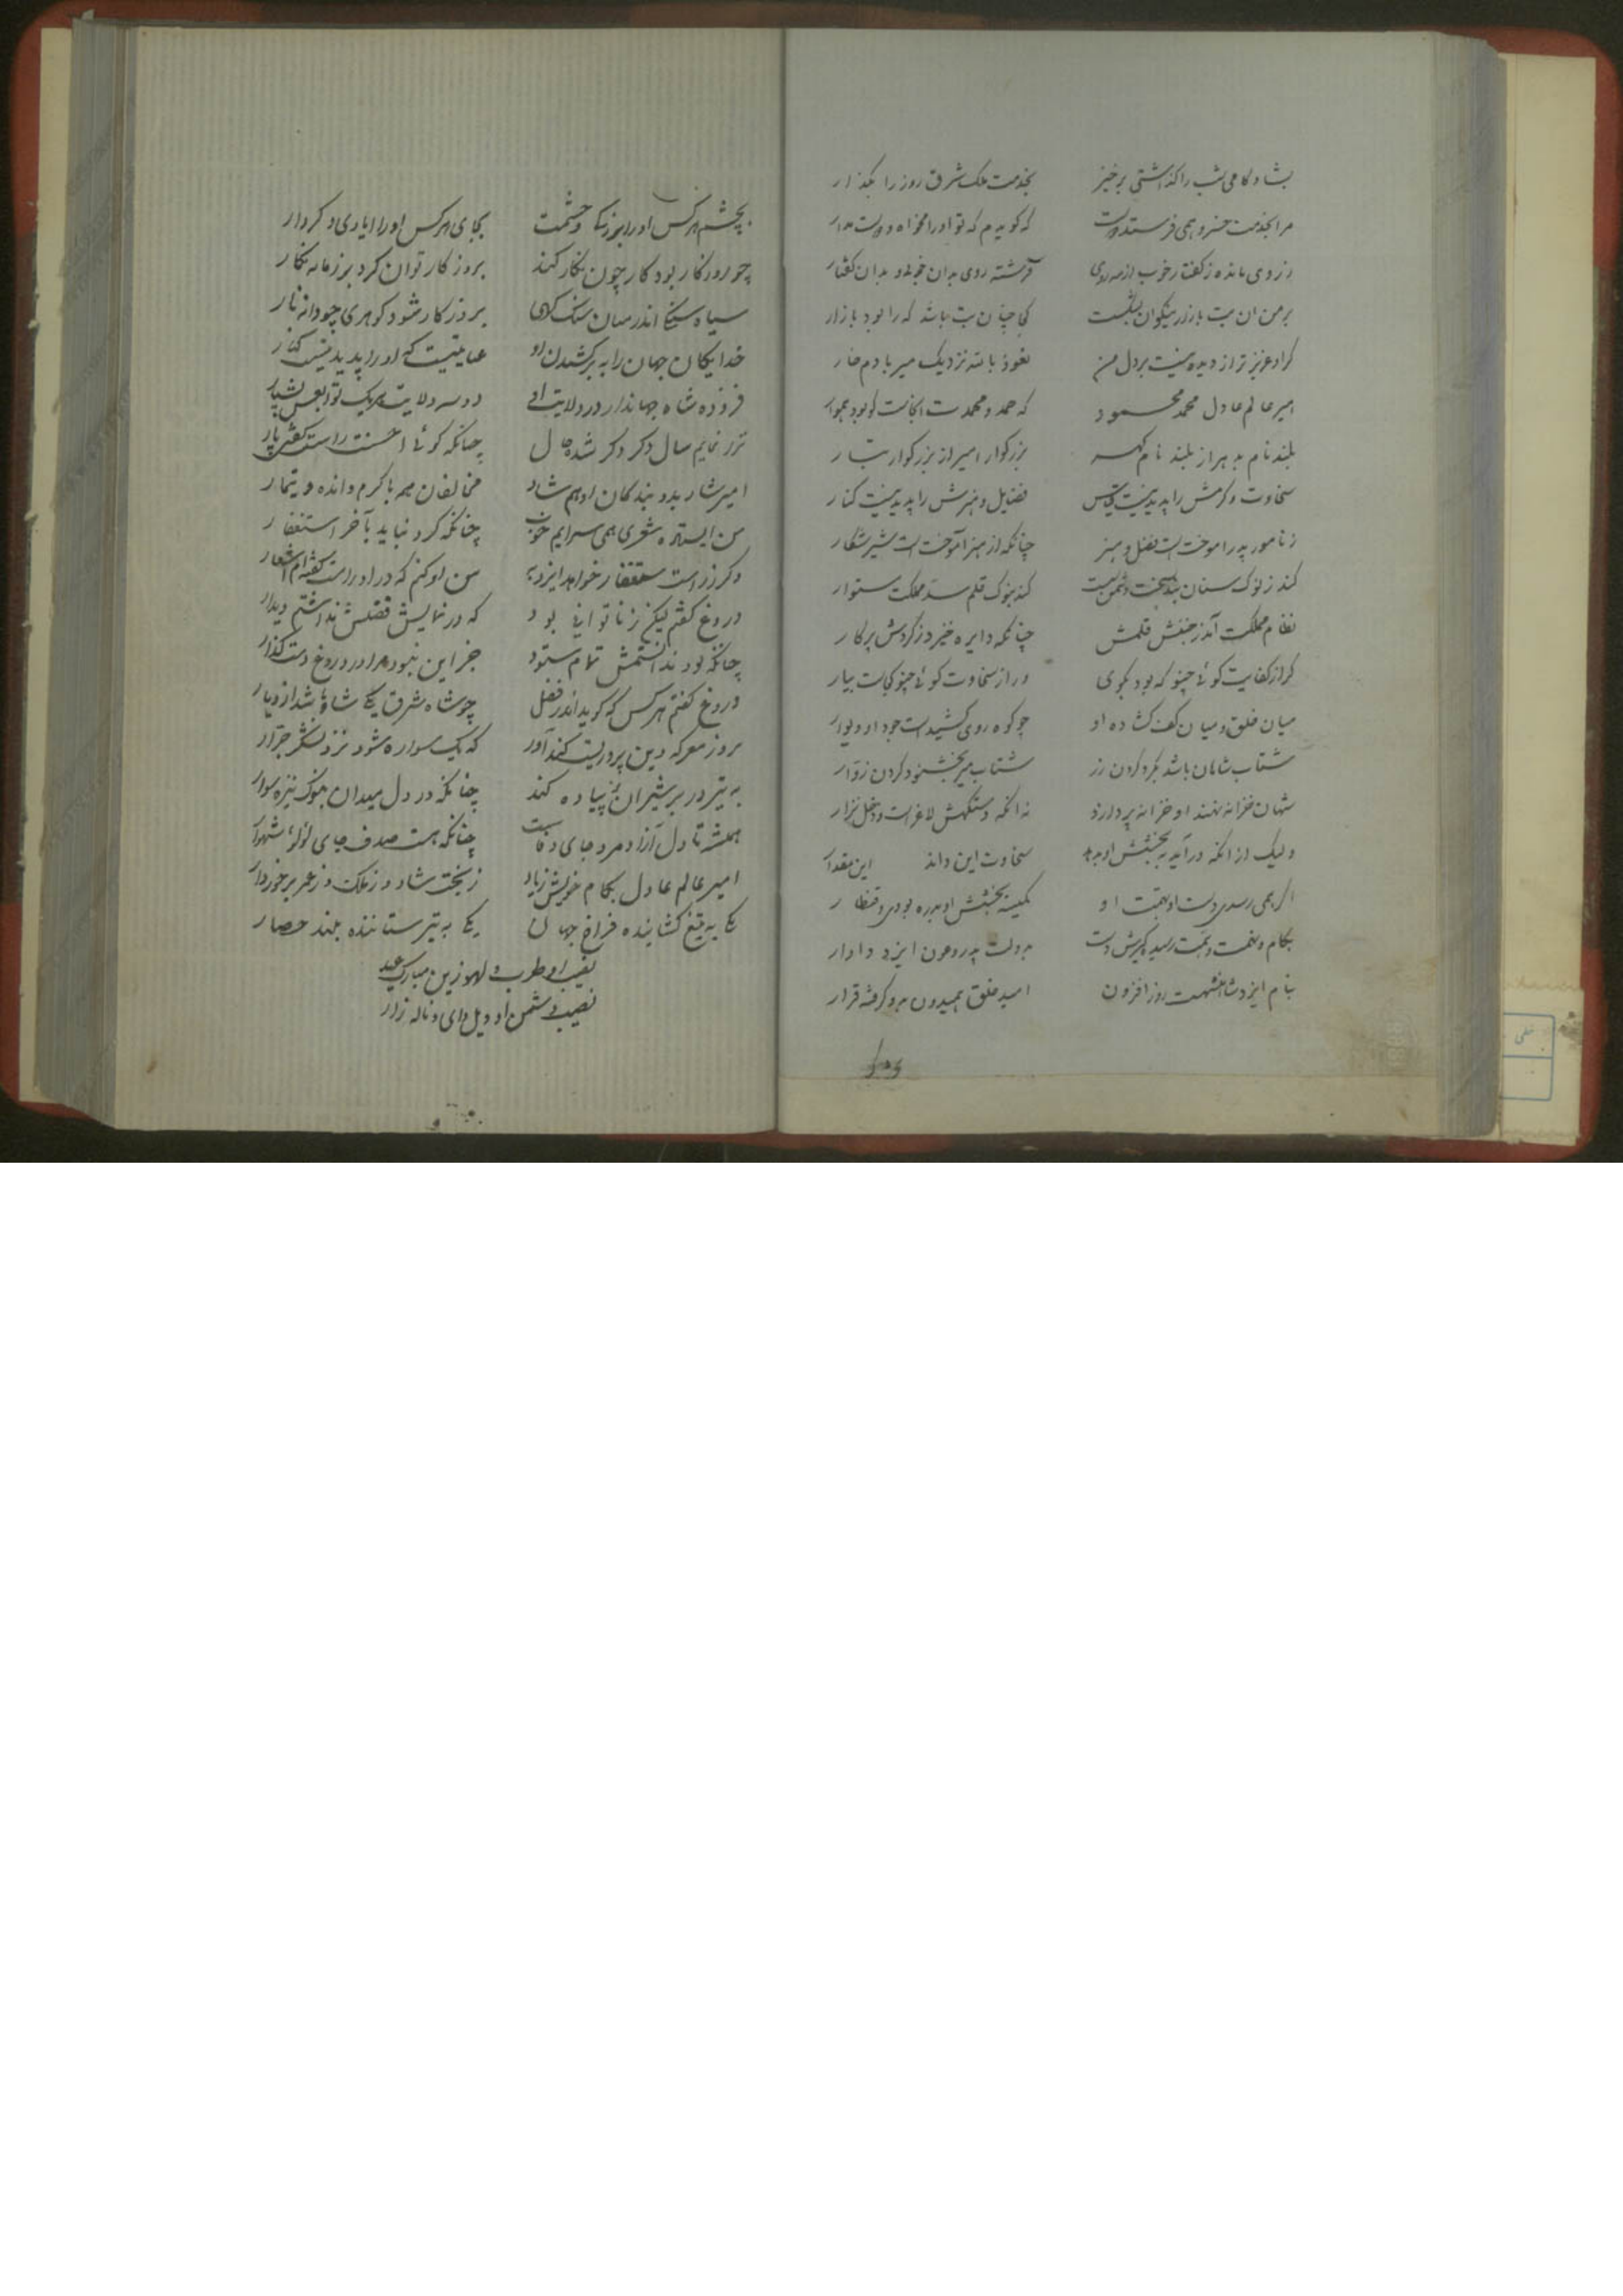 بشادکامی شب را کذاشتی برخیز بخدمت ملک شرق روز را بکذار
مرا بخدمت خسرو همی فرستد دوست که کویدم که تو او را مخواه و دوست مدار
ز روی مانده ز کفتار خوب فرشته روی بدان خوبی و بدان کفتار
بر من ان بت بازار نیکوان بشکست کجا چنان بت باشد که را بود بازار
کرا و عزیزتر از دیده نیست بر دل من نعوذ بالله نزدیک میر بادم خوار
امیر عالم عادل محمد محمود که حمد و محمدت انجاست کو بود هموار
بلند نام به هر از بلند نام کهر بزرکوار امیر از بزرکوار تبار
سخاوت و کرمش را پدید نیست قیاس فضایل و هنرش را پدید نیست کنار
ز نامور پدر اموخت است فضل و هنر چنانکه از هنر آموخت است شیر شکار
کند ز نوک سنان کند بنوک قلم سد مملکت ستوار
نظام مملکت آید ز جنبش قلمش چنانکه دایره خیزد ز کردش پرکار
کر از کفایت کوئی چنو که بود بکوی ور از سخاوت کوئی چنو کجاست بیار
میان خلق و میان کف کشاده او چو کوه روی کشیدست جود او دیوار
شتاب شاهان باشد بکرد کردن زر شتاب میر بخشنود کردن زوار
شهان خزانه نهند او خزانه پردازد نه انکه دستکهش لاغر است و دخل نزار
ولیک از انکه درآید به بخشش او سخاوت این داند این مقدار
اکر همی رسدی دست او بهمت او کمینه بخشش او بدره بودی و قنطار
بکام و نعمت و همت رسید دست بدولت پدر و عون ایزد دادار
بنام ایزد شاهنشهست روز افزون امید خلق همیدون بدو کرفته قرار
بچشم هرکس او را بزرکی و حشمت بجای هرکس او را ایادی و کردار
چو روزکار بود کار چون نکار کند بروزکار توان کرد بر زمانه نکار
سیاه سنکی اندر میان سنک بروزکار شود کوهری چو دانه نار
خدایکان جهان را به برکشیدن او عنایتیست که او را پدید نیست کنار
فزوده شاه جهاندار در ولایت او دو سه ولایت هر یک
ترا نمایم سال دکر دکر شده حال چنانکه کوئی احسنت راست کفتی پار
امیر شاد بدو بندکان او هم شاد مخالفان همه با کرم و انده و تیمار
من ایستاده شعری همی سرایم خوب چنانکه کرد نباید بآخر استغفار
دکر ز راست استغفار خواهد ایزد به من او کنم که در او راست کفته ام اشعار
دروغ کفتم لیکن ز ناتوانی بود که در نمایش فضلش نداشتم دیدار
چنانکه بود ندانستمش تمام ستود جز این نبود مرا در دروغ دست کذار
دروغ کفتم هرکس که کوید اندر فضل چو شاه شرق یکی شاه باشد از دیار
بروز معرکه دین پروریست کندآور که یک سواره شود نزد لشکر جرار
به تیر در بر شیران نر پیاده کند چنانکه در دل میدان بنوک نیزه سوار
همیشه تا دل آزاد مرد جای وفاست چنانکه هست صدف جای لؤلؤ شهوار
امیر عالم عادل بکام خویش زیاد ز بخت شاد و ز ملک و ز عمر برخوردار
یکی به تیغ کشاینده فراخ جهان یکی به تیر ستاننده بلند حصار
نصیب او طرب و لهو زین مبارک عید
نصیب دشمن او ویل و وای و ناله زار